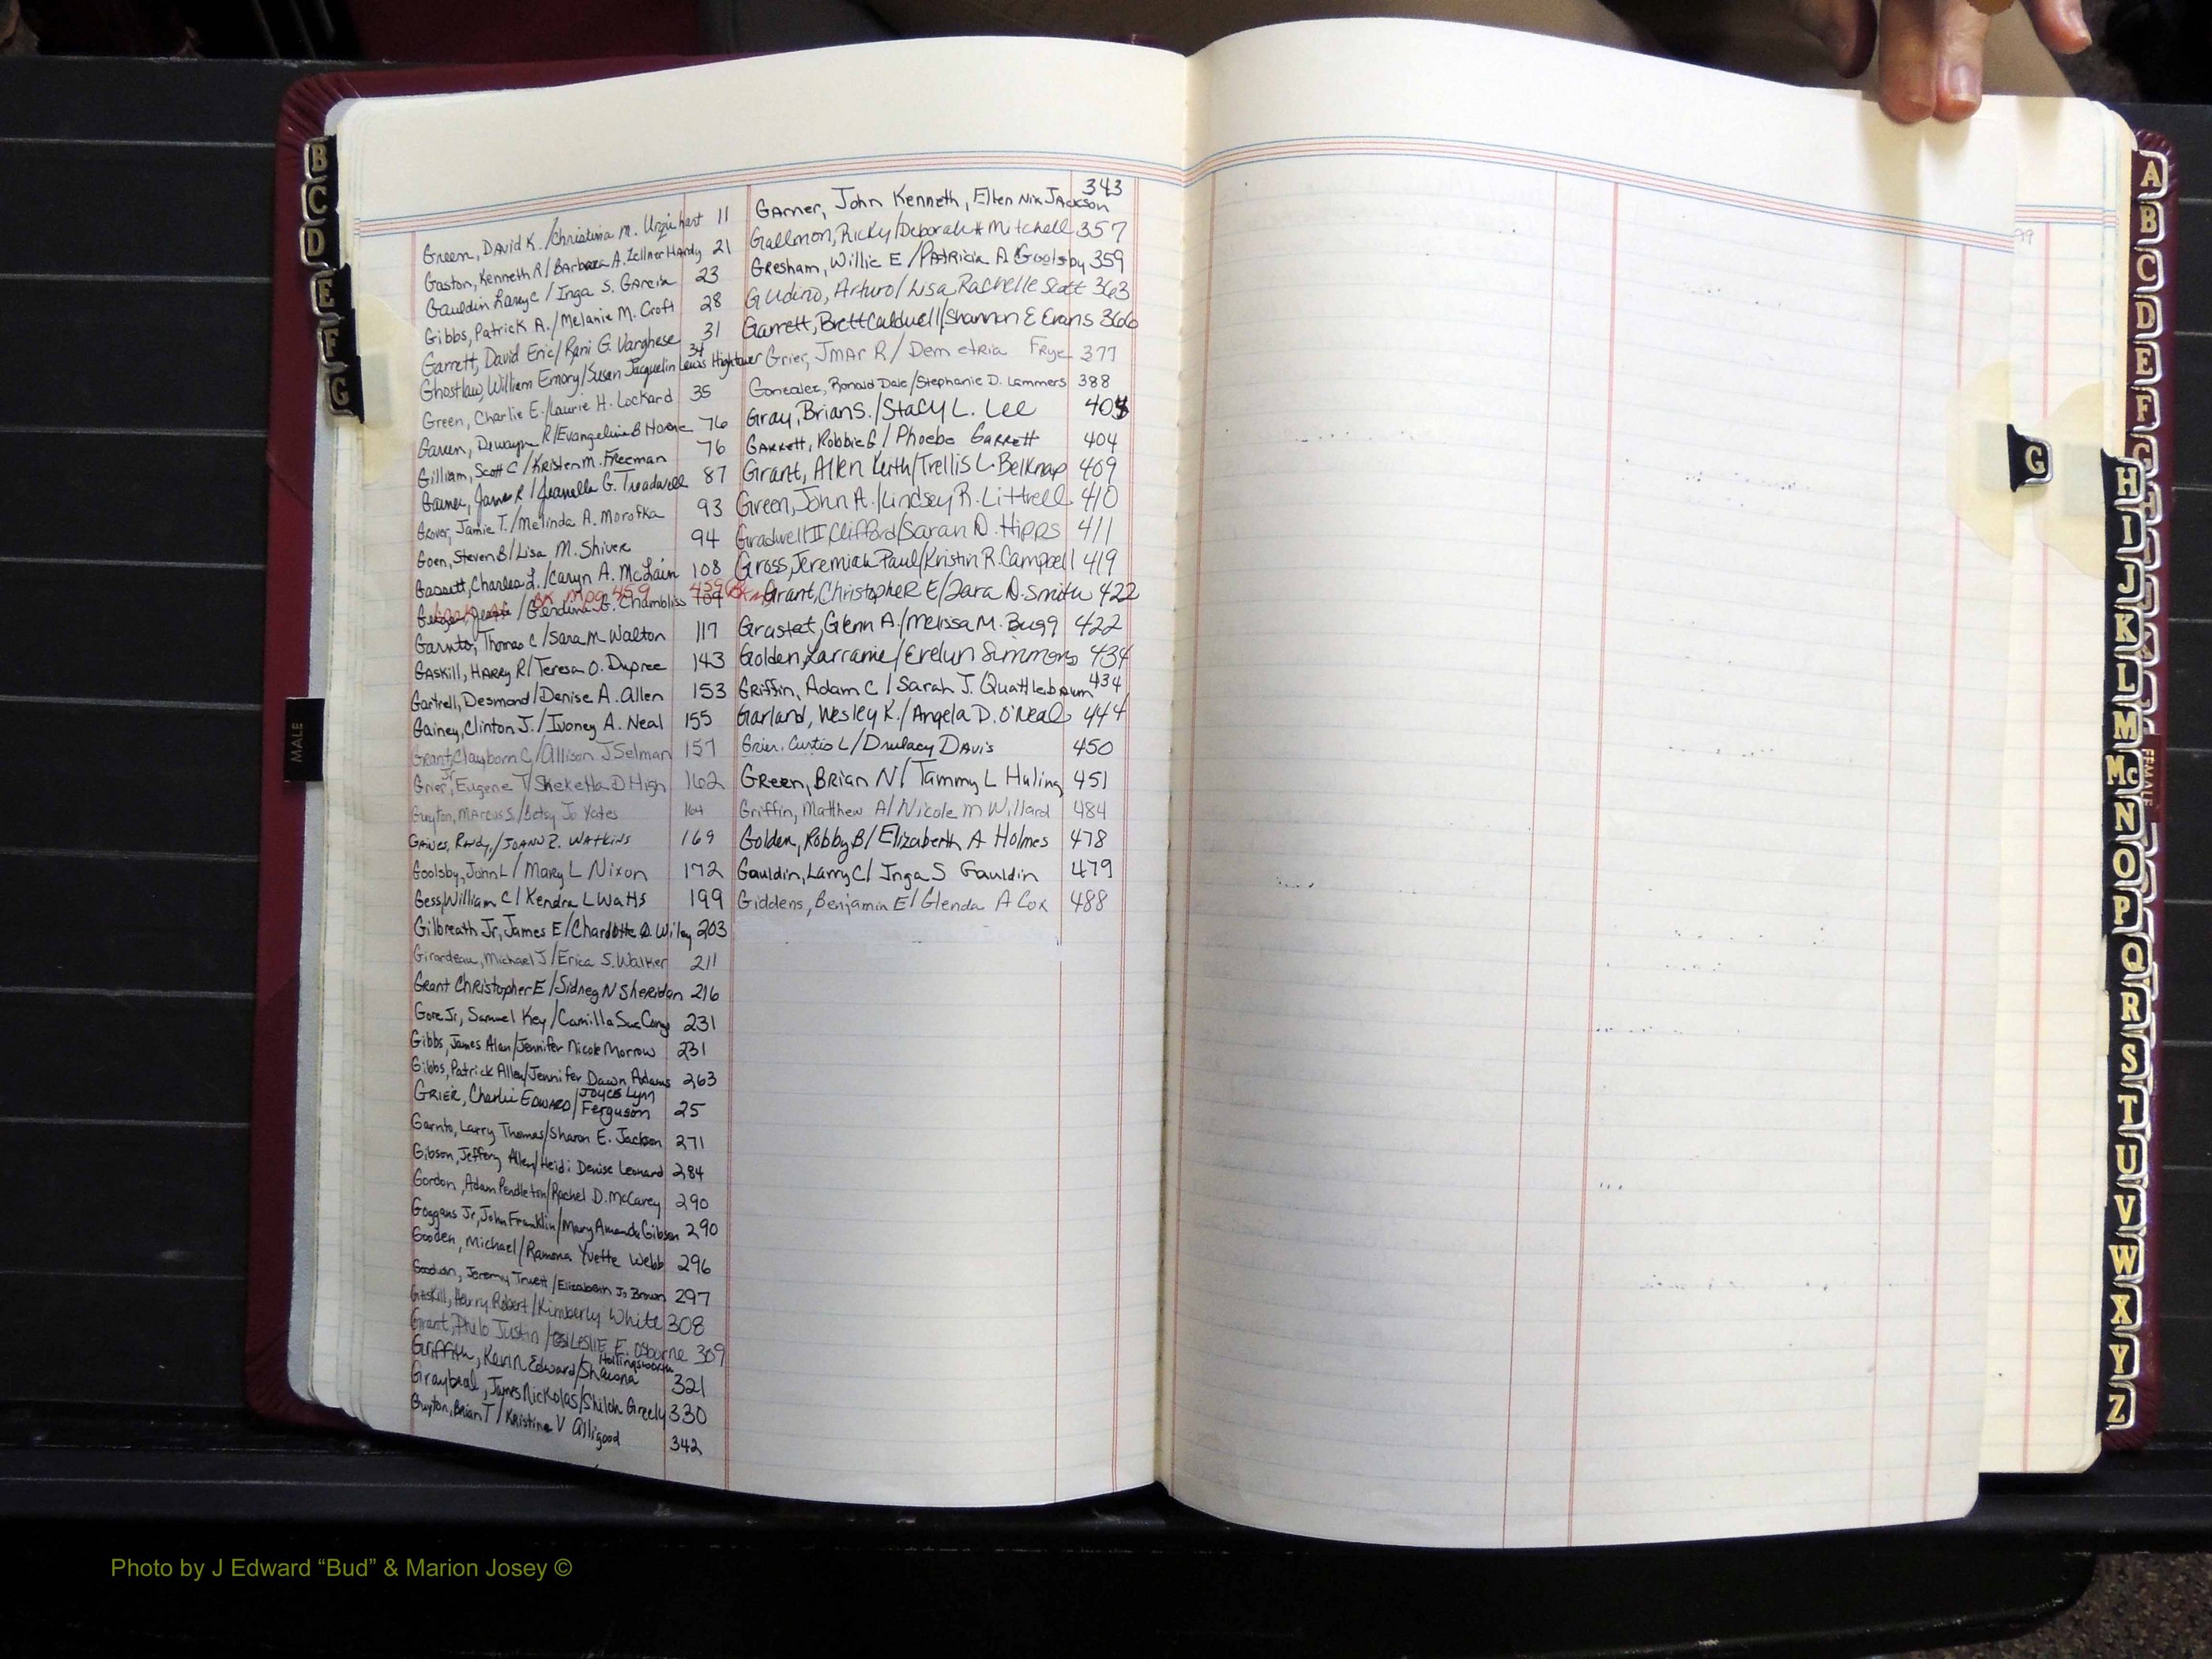 Green, David K. /Christina M. Urquhart 11
Gaston, Kenneth R/Barbara A. Zellner Handy 21
Gauldin Larry C / Inga S. Garcia 23
Gibbs, Patrick A./Melanie M. Croft 28
Garrett, David Eric/Rani G. Varghese 31
Ghostlaw, William Emory/Susan Jacquelin Lewis Hightower 34
Green, Charlie E./Laurie H. Lockard 35
Dewayne R/Evangeline B Horne 76
Gilliam, Scott C / Kristen M. Freeman 76
James R / Jeanelle G. Treadwell 87
Grover, Jamie T./Melinda A. Morofka 93
Goen, Steven B/Lisa M. Shiver 94
Gassett, Charles L./Caryn A. McLain 108
/ Gerdina G. Chambliss 109
BK M pg 459 459
Garnto, Thomas C /Sara M Walton 117
Gaskill, Harry R/Teresa O. Dupree 143
Gartrell, Desmond/Denise A. Allen 153
Gainey, Clinton J./Ivoney A. Neal 155
Grant, Clayborn C/Allison J Selman 157
Grier, Jr Eugene T/Sheketta D High 162
Guyton, Marcus S./Betsy Jo Yates 164
Gaines, Randy,/JoAnn Z. Watkins 169
Goolsby, John L / Mary L Nixon 172
Gess, William C / Kendra L Watts 199
Gilbreath Jr, James E/Chardotte D. Wiley 203
Girardeau, Michael J /Erica S. Walker 211
Grant Christopher E /Sidney N Sheridan 216
Gore Jr, Samuel Key /Camilla Sue 231
Gibbs, James Alan/Jennifer Nicole Morrow 231
Gibbs, Patrick Allen/Jennifer Dawn Adams 263
Grier, Charlie Edward/Joyce Lynn Ferguson 25
Garnto, Larry Thomas/Sharon E. Jackson 271
Gibson, Jeffery Allen/Heidi Denise Leonard 284
Gordon, Adam Pendleton/Rachel D. McCarey 290
Goggans Jr, John Franklin/Mary Amanda Gibson 290
Gooden, Michael/Ramona Yvette Webb 296
Goodwin, Jeremy Truett /Elizabeth J. Brown 297
Gaskill, Harry Robert /Kimberly White 308
Grant, Philo Justin / Leslie E. Osburne 309
Griffith, Kevin Edward/Shauna Hollingsworth 321
Graybeal, James Nickolas/Shiloh Greely 330
Guyton, Brian T / Kristine V Alligood 342
Garner, John Kenneth, Ellen Nix Jackson 343
Gallmon, Ricky/Deborah H Mitchell 357
Gresham, Willie E /Patricia A Goolsby 359
Gudino, Arturo/Lisa Rachelle Scott 363
Garrett, Brett Caldwell/Shannon E Evans 366
Grier, Jmar R / Demetria Frye 377
Gonzalez, Ronald Dale/Stephanie D. Lammers 388
Gray, Brian S./Stacy L. Lee 404
Garrett, Robbie G / Phoebe Garrett 404
Grant, Allen Keith/Trellis L. Belknap 409
Green, John A./Lindsey R. Littrell 410
Gradwell II, Clifford/Sarah D. Hipps 411
Gross, Jeremiah Paul/Kristin R. Campbell 419
Grant, Christopher E/Zara D. Smith 422
Grastat, Glenn A./Melissa M. Bugg 422
Golden, Larramie/Evelyn Simmons 434
Griffin, Adam C / Sarah J. Quattlebaum 434
Garland, Wesley K./Angela D. O'Neal 444
Grier, Curtis L/Drulacy Davis 450
Green, Brian N/ Tammy L Huling 451
Griffin, Matthew A/ Nicole M Willard 484
Golden, Robby B/ Elizabeth A Holmes 478
Gauldin, Larry C/ Inga S Gauldin 479
Giddens, Benjamin E/ Glenda A Cox 488
B
C
D
E
F
G
MALE
G
A
B
C
D
E
F
G
H
I
J
K
L
M
Mc
N
O
P
Q
R
S
T
U
V
W
X
Y
Z
FEMALE
Photo by J Edward “Bud” & Marion Josey ©